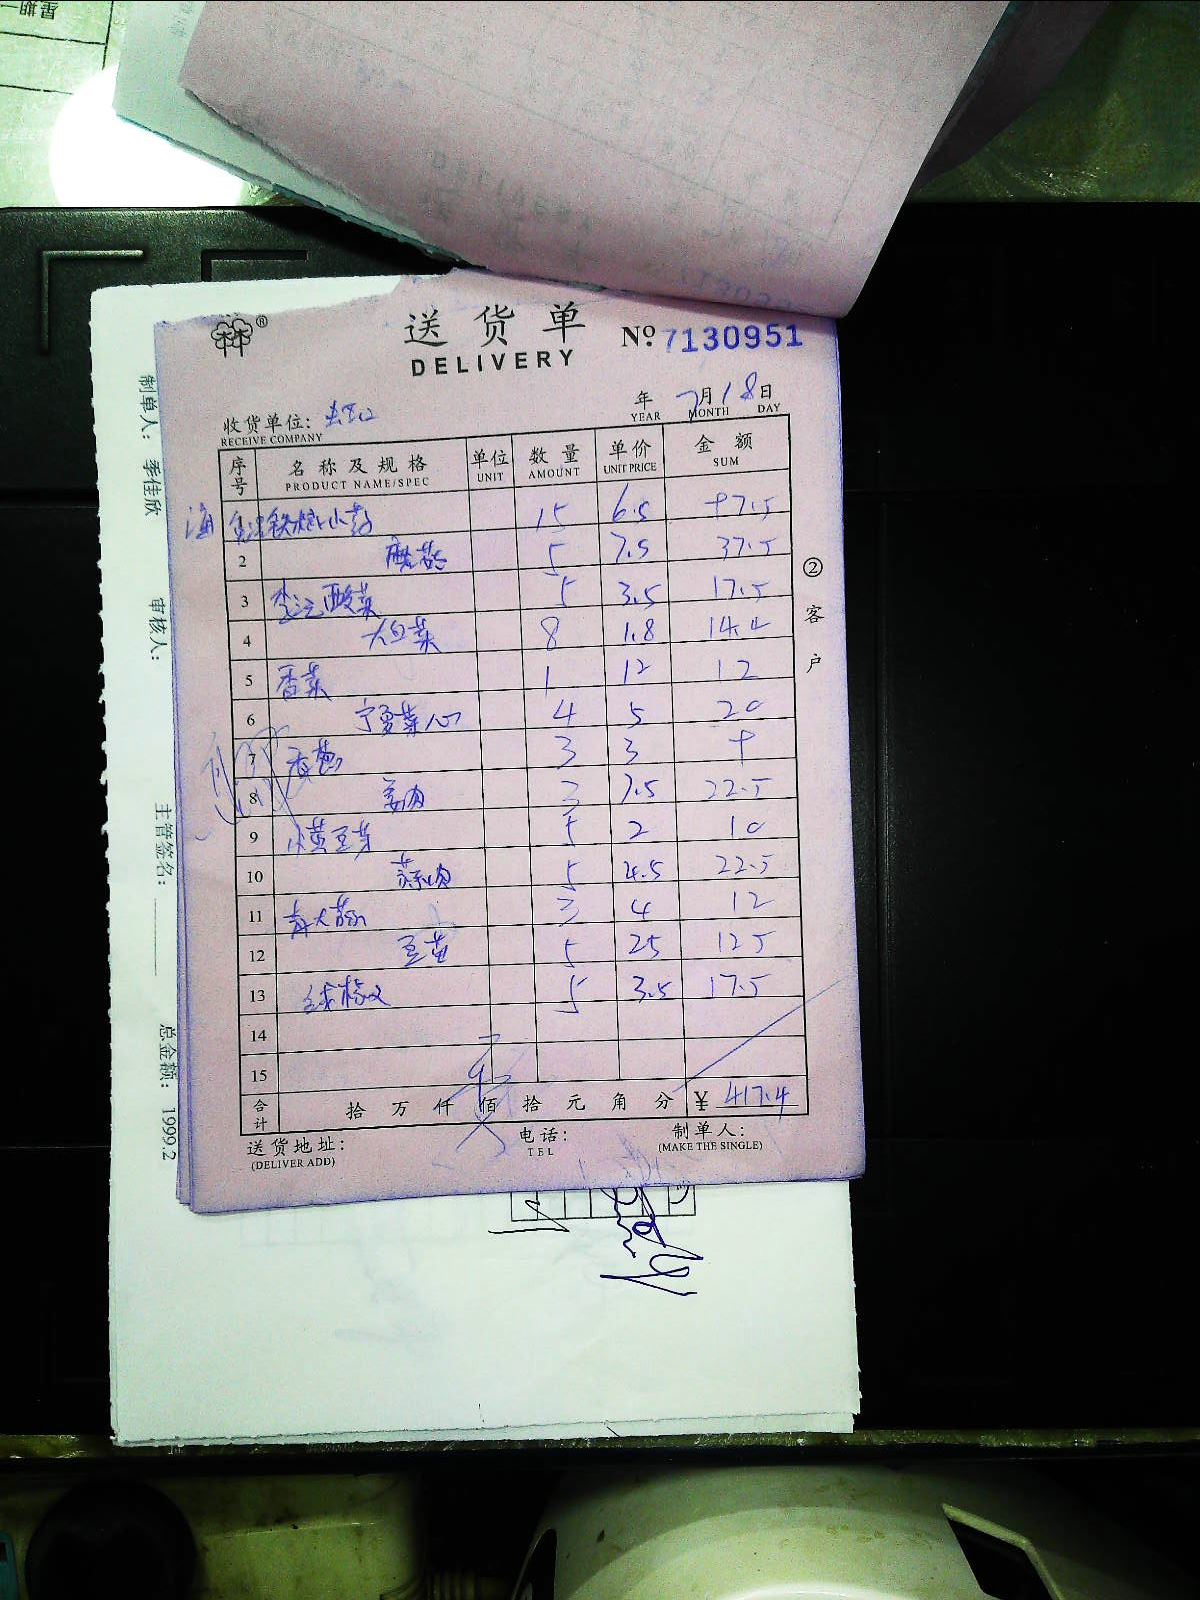 星期一
送货单
DELIVERY
No 7130951
年 7月18日
YEAR MONTH DAY
收货单位:
RECEIVE COMPANY
序号 名称及规格 单位 数量 单价 金额
PRODUCT NAME/SPEC UNIT AMOUNT UNIT PRICE SUM
1 小 15 6.5 97.5
2 蘑菇 5 7.5 37.5
3 酸菜 5 3.5 17.5
4 大白菜 8 1.8 14.4
5 香菜 1 12 12
6 宁夏菜心 4 5 20
7 香葱 3 3 9
8 姜肉 3 7.5 22.5
9 小黄豆芽 5 2 10
10 蒜肉 5 4.5 22.5
11 青大蒜 3 4 12
12 豆苗 5 25 125
13 5 3.5 17.5
14
15
合计 拾 万 仟 佰 拾 元 角 分 ¥ 417.4
送货地址: 电话: 制单人:
(DELIVER ADD) TEL (MAKE THE SINGLE)
②客户
制单人: 季佳欣
审核人:
主管签名:
总金额: 1999.2